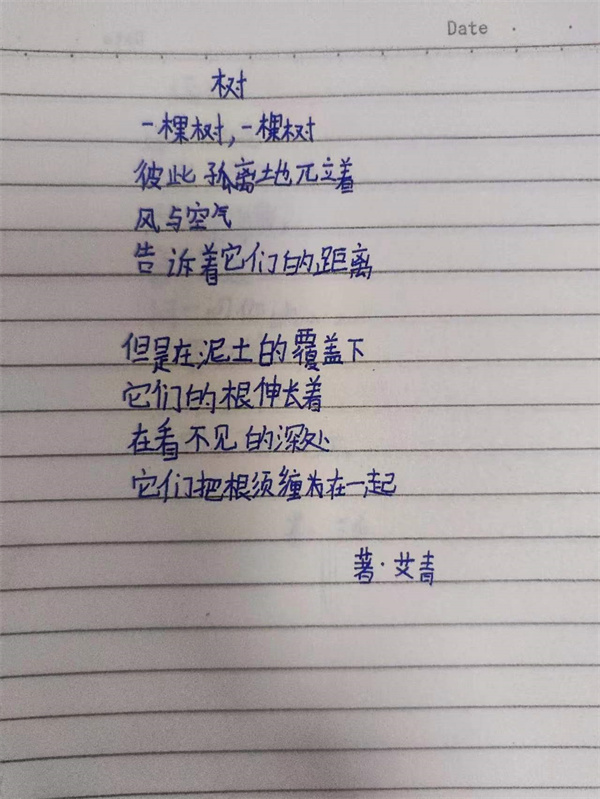 Date
树
一棵树,一棵树
彼此孤离地兀立着
风与空气
告诉着它们的距离
但是在泥土的覆盖下
它们的根伸长着
在看不见的深处
它们把根须缠为在一起
著·艾青